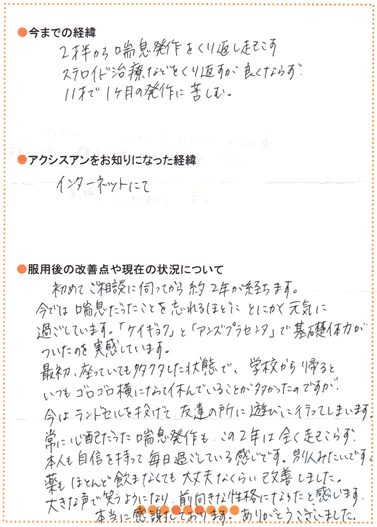 ●今までの経緯
2才半から喘息発作をくり返し起こす
ステロイド治療などをくり返すが良くならず。
11才で1ヶ月の発作に苦しむ。
●アクシスアンをお知りになった経緯
インターネットにて
●服用後の改善点や現在の状況について
初めてご相談に伺ってから約2年が経ちます。
今では喘息だったことを忘れるほどに とにかく元気に
過ごしています。「ケイギョク」と「アンズプラセンタ」で基礎体力が
ついたのを実感しています。
最初、座っていてもクタクタした状態で、学校から帰ると
いつもゴロゴロ横になって休んでいることが多かったのですが
今はランドセルを投げて友達の所に遊びに行ってしまいます。
常に心配だった喘息発作も この2年は全く起こらず
本人も自信を持って毎日過ごしている感じです。別人みたいです。
薬もほとんど飲まなくても大丈夫なくらいに改善しました。
大きな声で笑うようになり、前向きな性格になったと感じます。
本当に感謝しております。ありがとうございました。